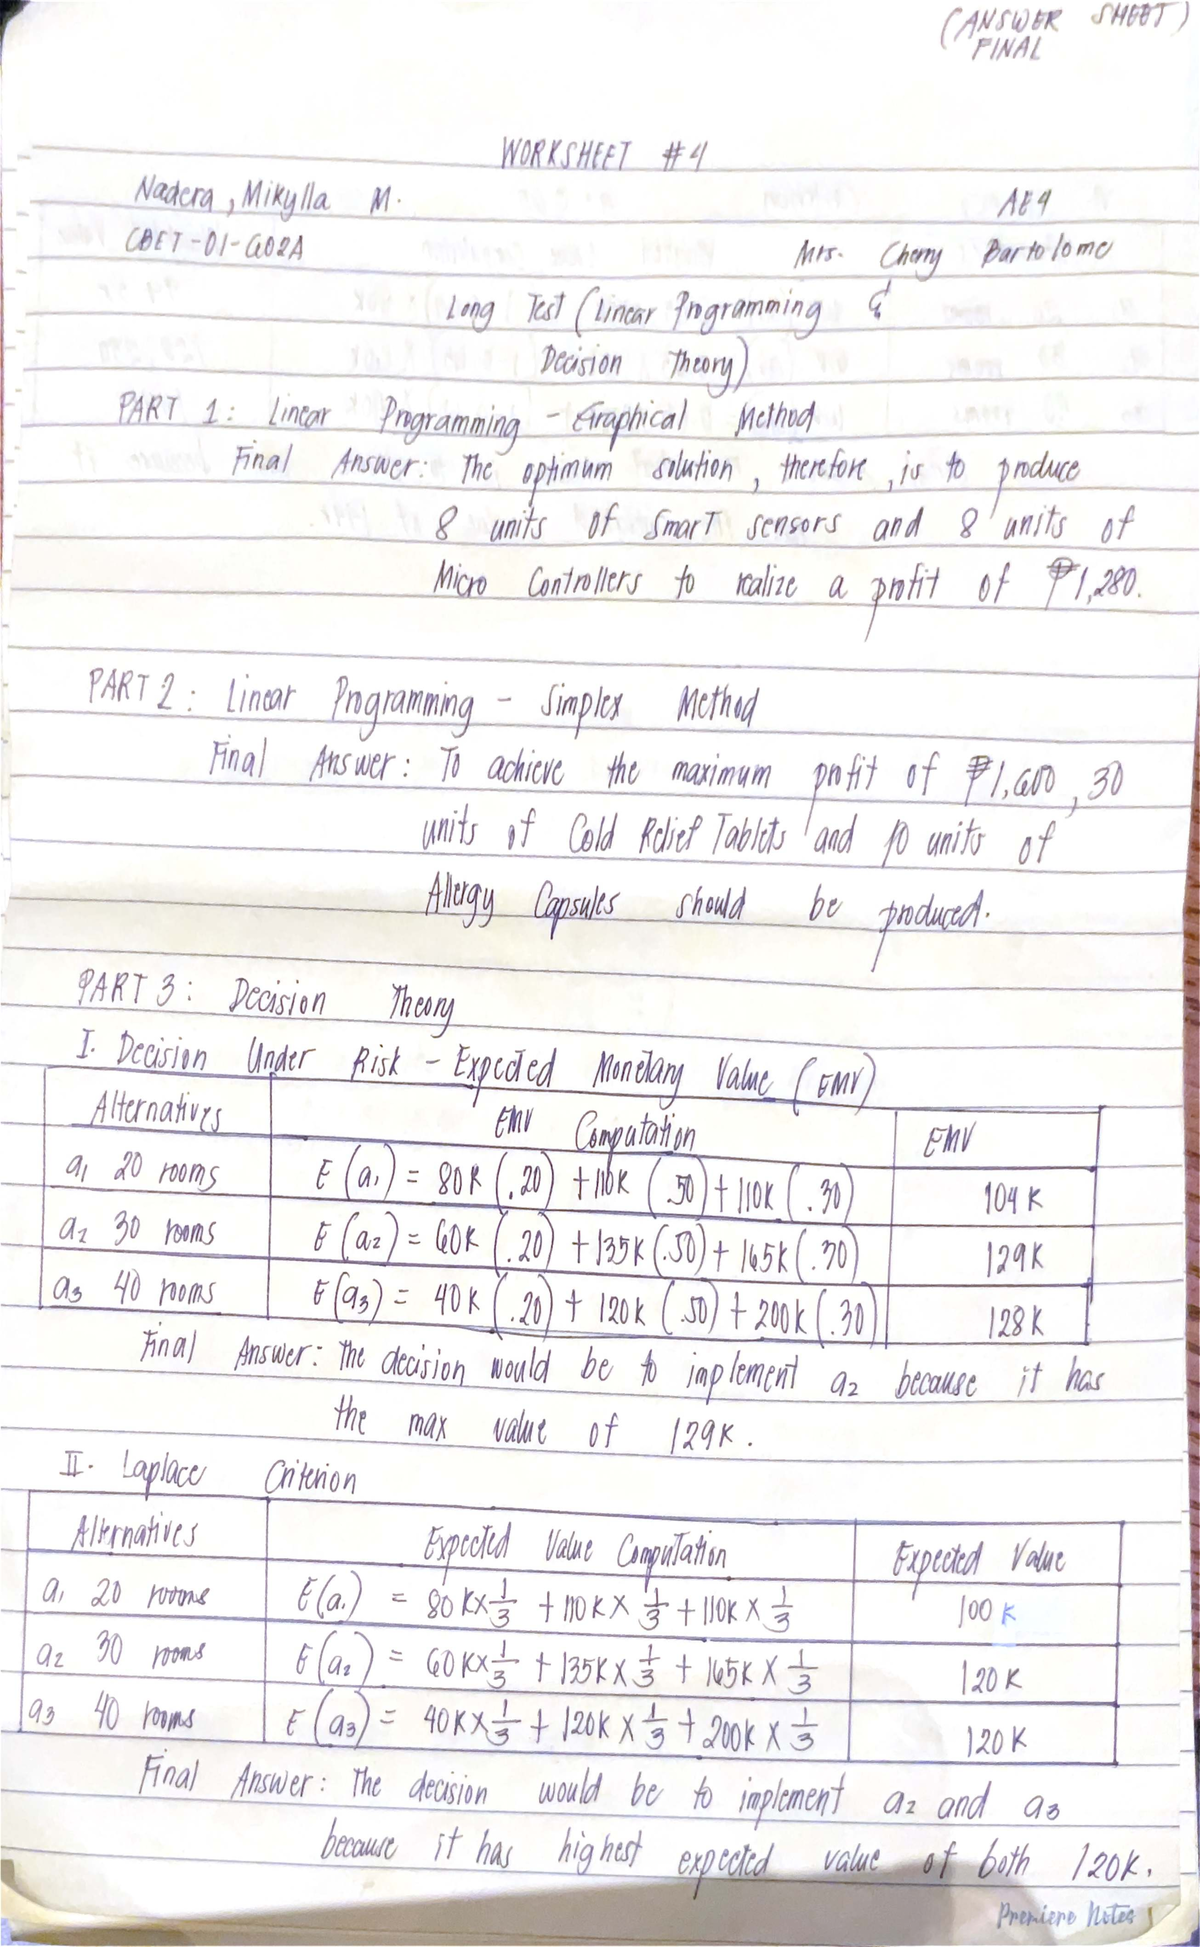 (ANSWER SHEET)
FINAL
WORKSHEET #4
Nadera, Mikylla M. AE4
CBET-01-602A Mrs. Cherry Bartolome
Long Test (Linear Programming &
Decision Theory)
PART 1: Linear Programming - Graphical Method
Final Answer: The optimum solution, therefore, is to produce
8 units of Smart sensors and 8 units of
Micro Controllers to realize a profit of ₱1,280.
PART 2: Linear Programming - Simplex Method
Final Answer: To achieve the maximum profit of ₱1,600, 30
units of Cold Relief Tablets and 10 units of
Allergy Capsules should be produced.
PART 3: Decision Theory
I. Decision Under Risk - Expected Monetary Value (EMV)
Alternatives EMV Computation EMV
a1 20 rooms E(a1) = 80K (.20) + 110K (.50) + 110K (.30) 104K
a2 30 rooms E(a2) = 60K (.20) + 135K (.50) + 165K (.30) 129K
a3 40 rooms E(a3) = 40K (.20) + 120K (.50) + 200K (.30) 128K
Final Answer: The decision would be to implement a2 because it has
the max value of 129K.
II. Laplace Criterion
Alternatives Expected Value Computation Expected Value
a1 20 rooms E(a1) = 80K×1/3 + 110K×1/3 + 110K×1/3 100K
a2 30 rooms E(a2) = 60K×1/3 + 135K×1/3 + 165K×1/3 120K
a3 40 rooms E(a3) = 40K×1/3 + 120K×1/3 + 200K×1/3 120K
Final Answer: The decision would be to implement a2 and a3
because it has highest expected value of both 120K.
Premiere Notes